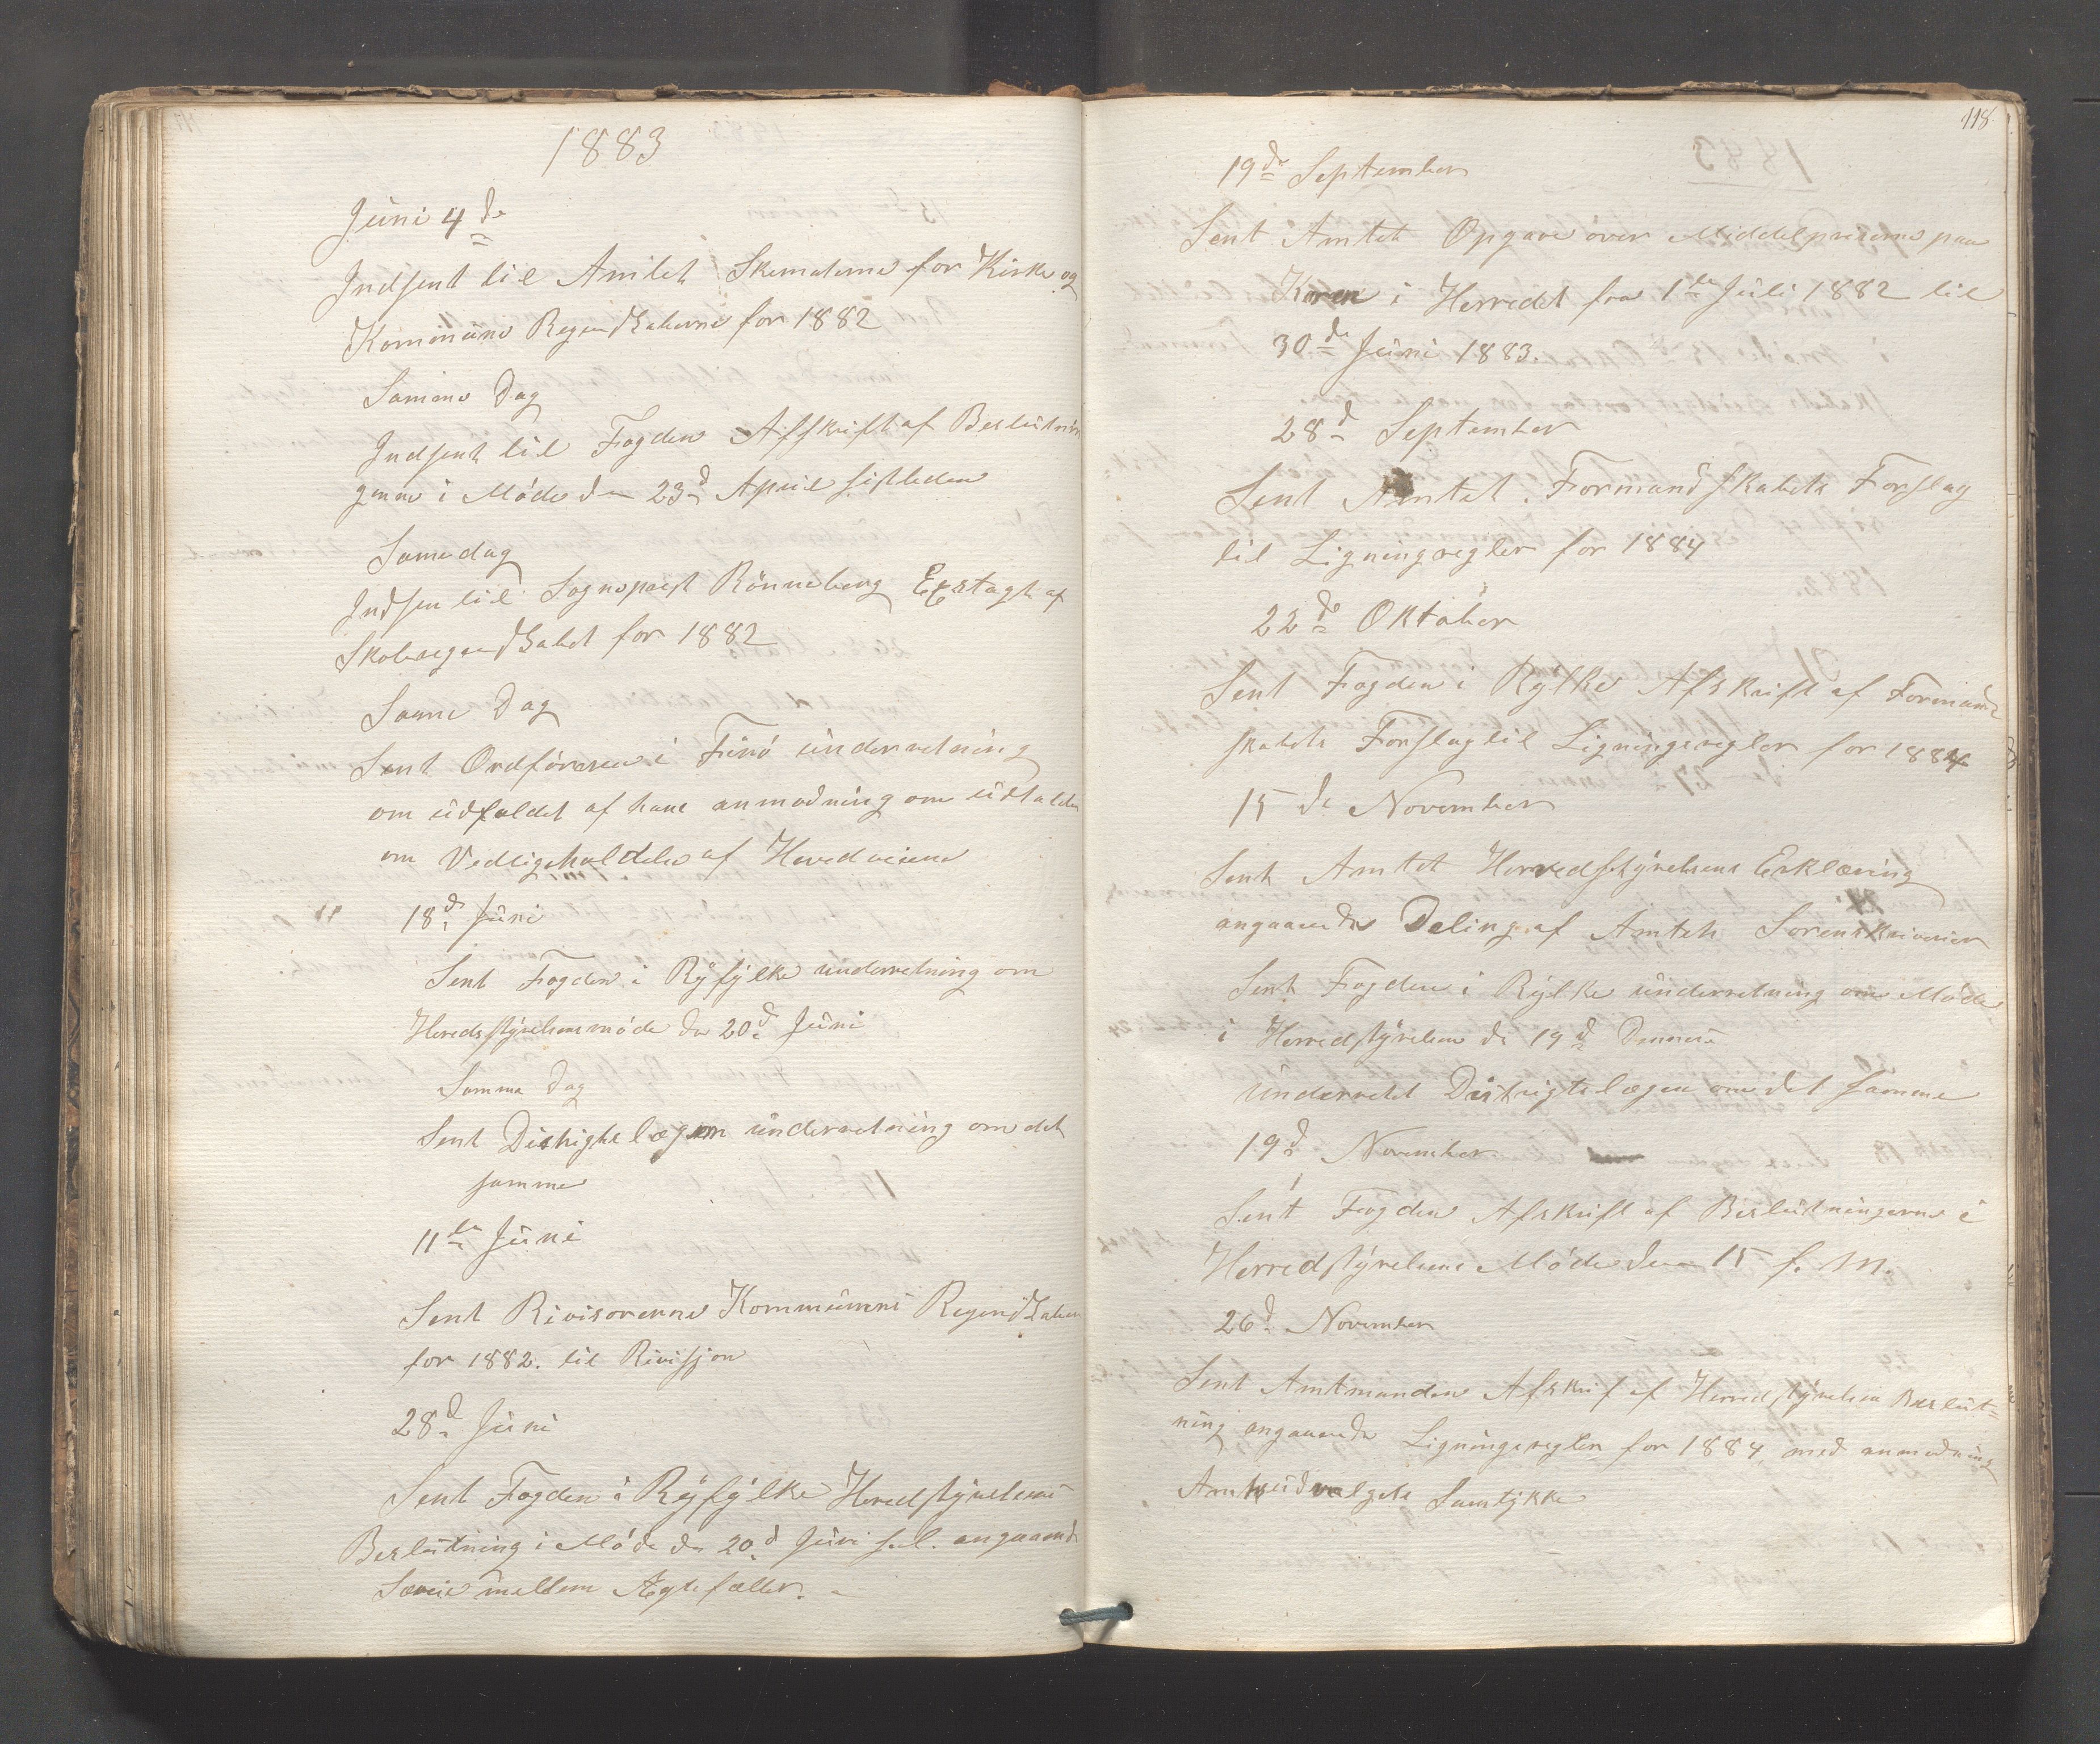 1883
Juni 4de
Indsent til Amtet Skematerne for Kirke og
Kommune Regendskaberne for 1882
Samme Dag
Indsent til Fogden Afskrift af Beslutnin
gerne i Møde den 23d April sistleden
Samedag
Indsen til Sognepræst Rönneberg Exstagt af
Skoleregendskabet for 1882
Samme Dag
Sent Ordföreren i Finö underretning
om udfaldet af hans anmodning om udtalelse
om Vedligeholdelse af Hovedveiene
18de Juni
Sent Fogden i Ryfylke underretning om
Heredsstyrelsens möde den 20d Juni
Samme Dag
Sent Distrigtslægen underretning om det
samme
11te Juni
Sent Rivisorerne Kommunens Regendskaber
for 1882. til Rivisjon
28d Juni
Sent Fogden i Ryfylke Heredstyrelsens
Beslutning i Möde den 20d Juni s.l. angaaende
Særeie mellem Ægtefæller.
118
19de September
Sent Amtet Opgave over Middelpriserne paa
Koren i Herredet fra 1te Juli 1882 til
30de Juni 1883.
28d September
Sent Amtet Formandskabets Forslag
til Ligningsregler for 1884
22de Oktober
Sent Fogden i Rylke Afskrift af Formand
skabets Forslag til Ligningsregler for 1884
15de November
Sent Amtet Herredstyrelsens Erklæring
angaaende Deling af Amtets Sorenskriverier
Sent Fogden i Rylke underretning om Möde
i Herredstyrelsen de 19d Dennes
underrettet Distrigtslægen om det samme
19d November
Sent Fogden Afskrift af Beslutningerne i
Herredstyrelsens Möde den 15 f. M.
26d November
Sent Amtmanden Afskrif af Herredstyrelsen Beslut=
ning angaaende Ligningsregler for 1884, med anmodning
Amtsudvalgets Samtykke